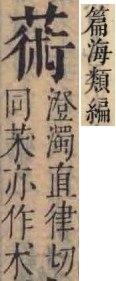 篇海類編
澄濁直律切
同茉亦作术